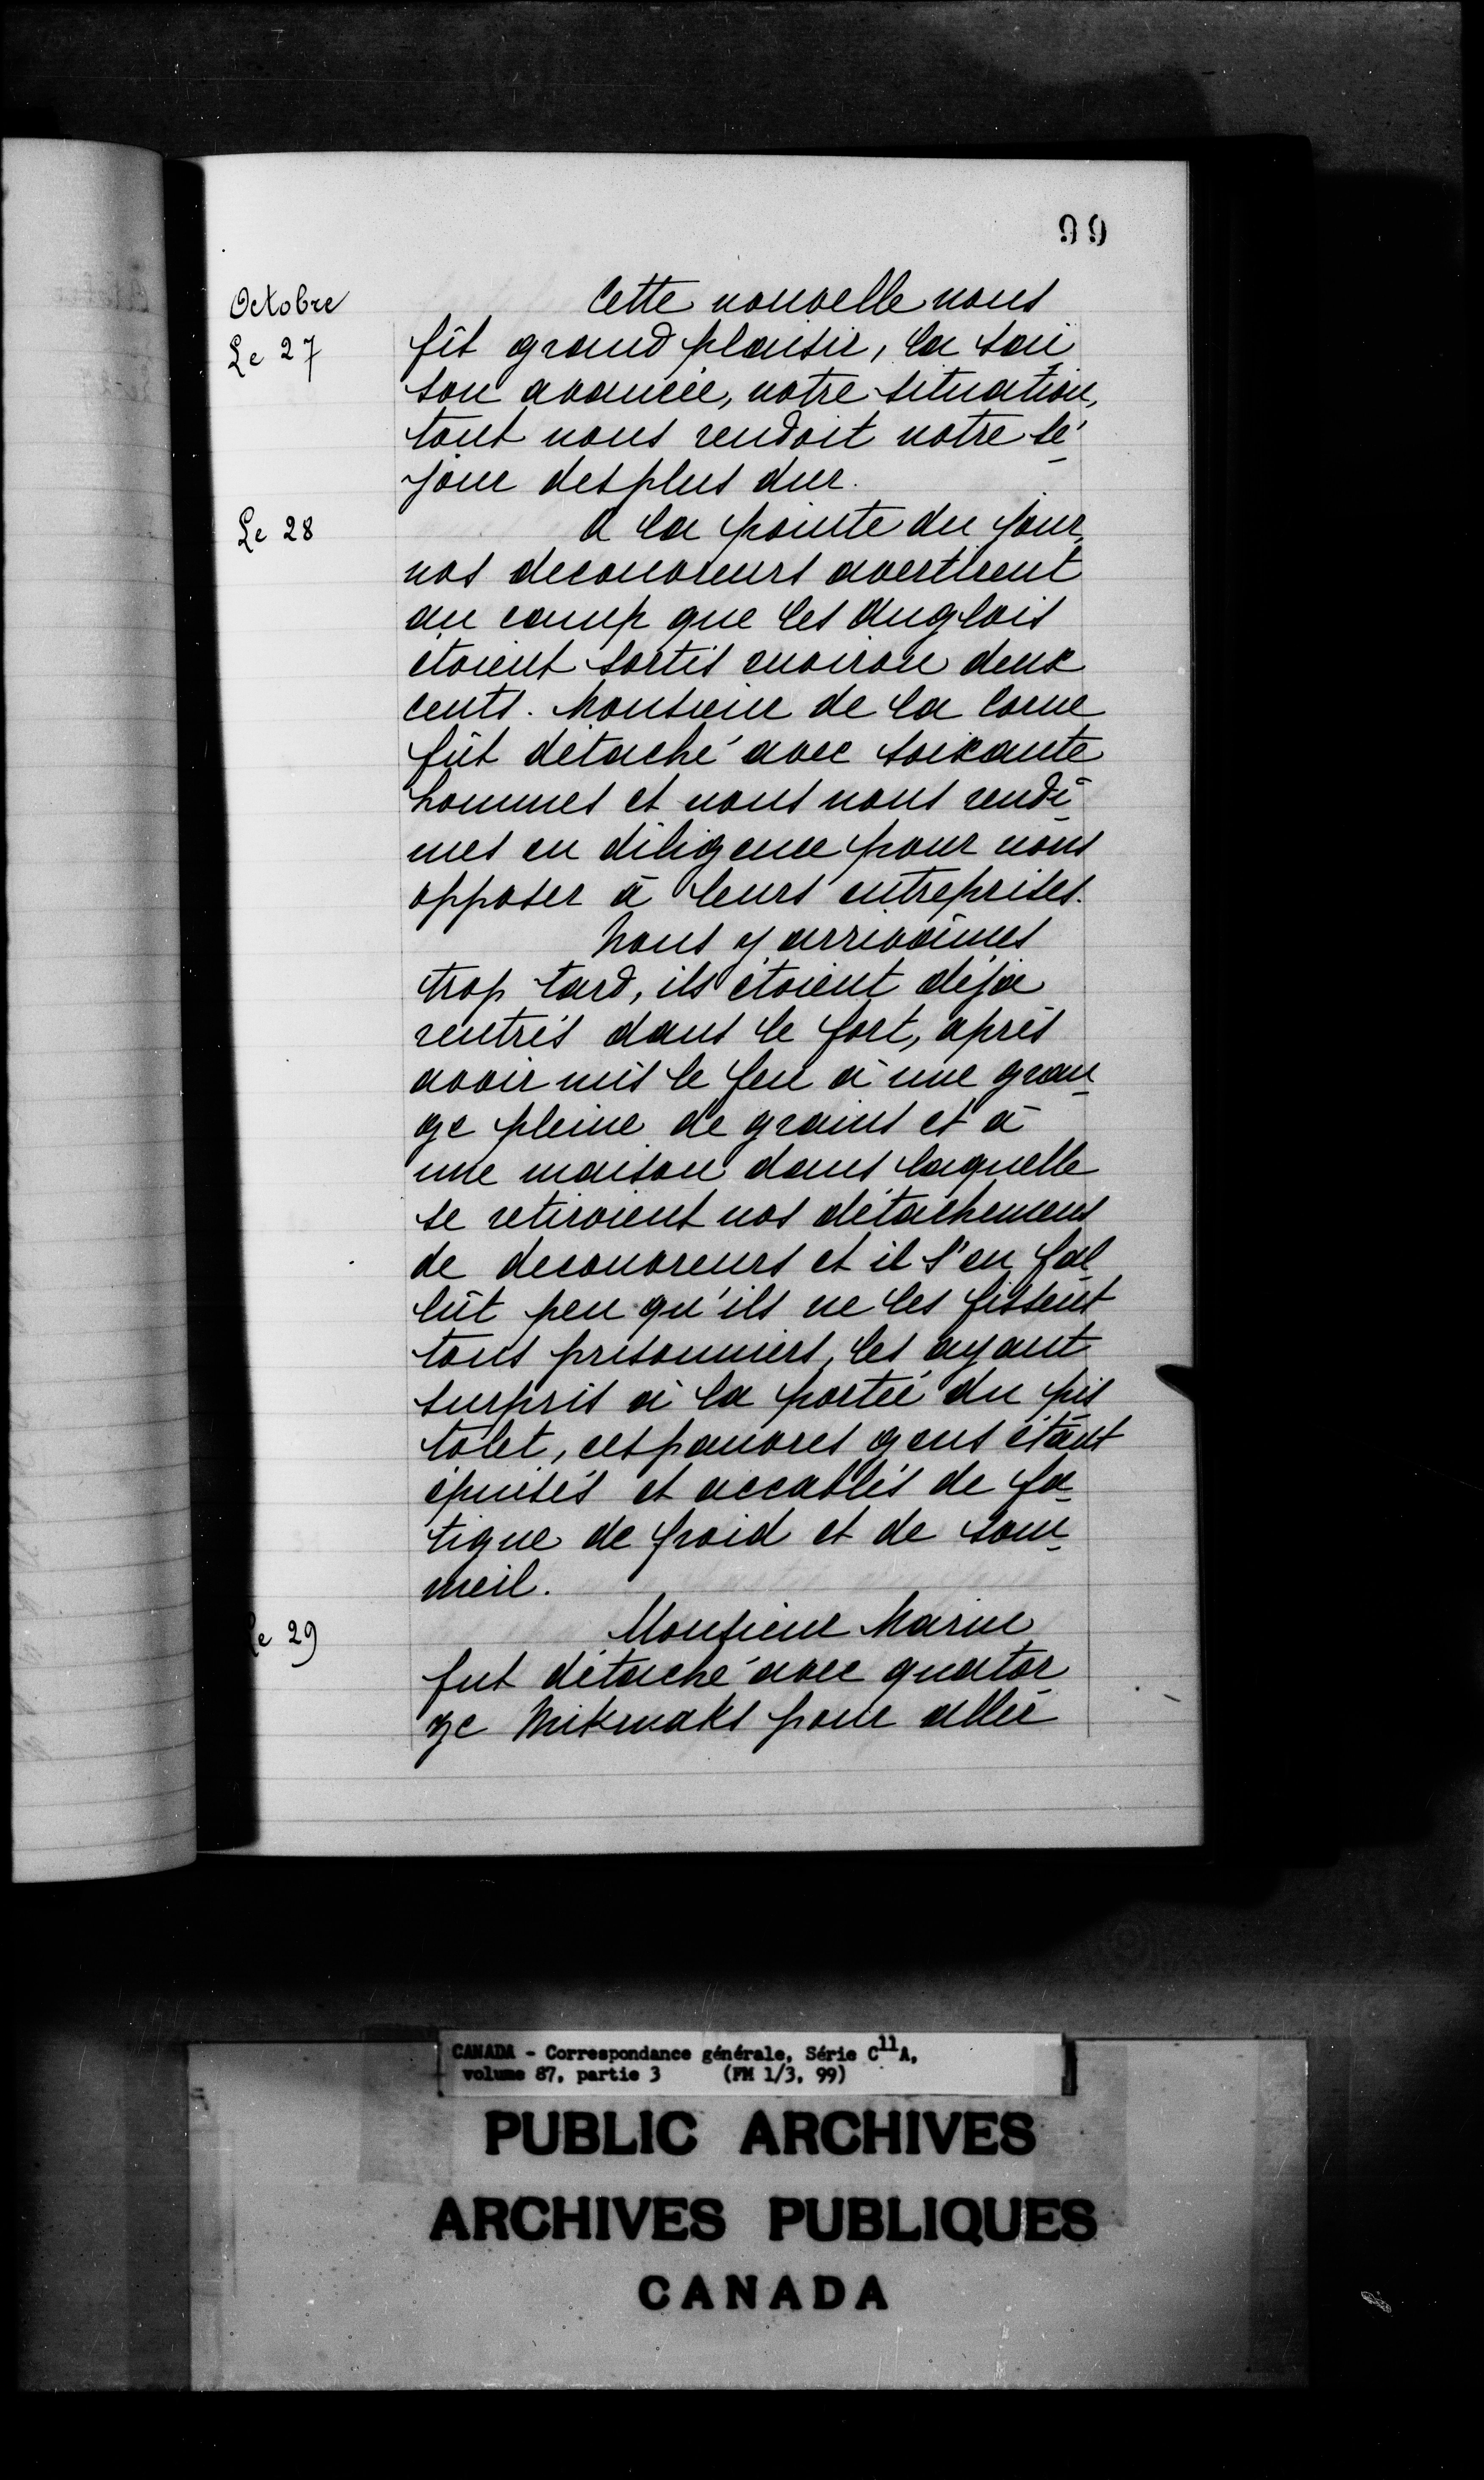 99
Octobre
Le 27
Cette nouvelle nous
fit grand plaisir, la sai
son avancée, notre situation,
tout nous rendoit notre sé
jour des plus dur.
Le 28
A la pointe du jour,
nos decouvreurs avertirent
au camp que les Anglois
étoient sortis environ deux
cents. Monsieur de la Corne
fût détaché avec soixante
hommes et nous nous rendî
mes en diligence pour nous
opposer à leurs entreprises.
Nous y arrivâmes
trop tard, ils étoient déja
rentrés dans le fort, après
avoir mis le feu à une gran
ge pleine de grains et à
une maison dans laquelle
se retiroient nos détachemens
de decouvreurs et il s'en fal
lût peu qu'ils ne les fissent
tous prisonniers, les ayant
surpris à la portée du pis
tolet, ces pauvres gens étant
épuisés et accablés de fa
tigue de froid et de som
meil.
Le 29
Monsieur Marin
fut détaché avec quator
ze Mikmaks pour aller
CANADA - Correspondance générale, Série C11A,
volume 87, partie 3 (FM 1/3, 99)
PUBLIC ARCHIVES
ARCHIVES PUBLIQUES
CANADA